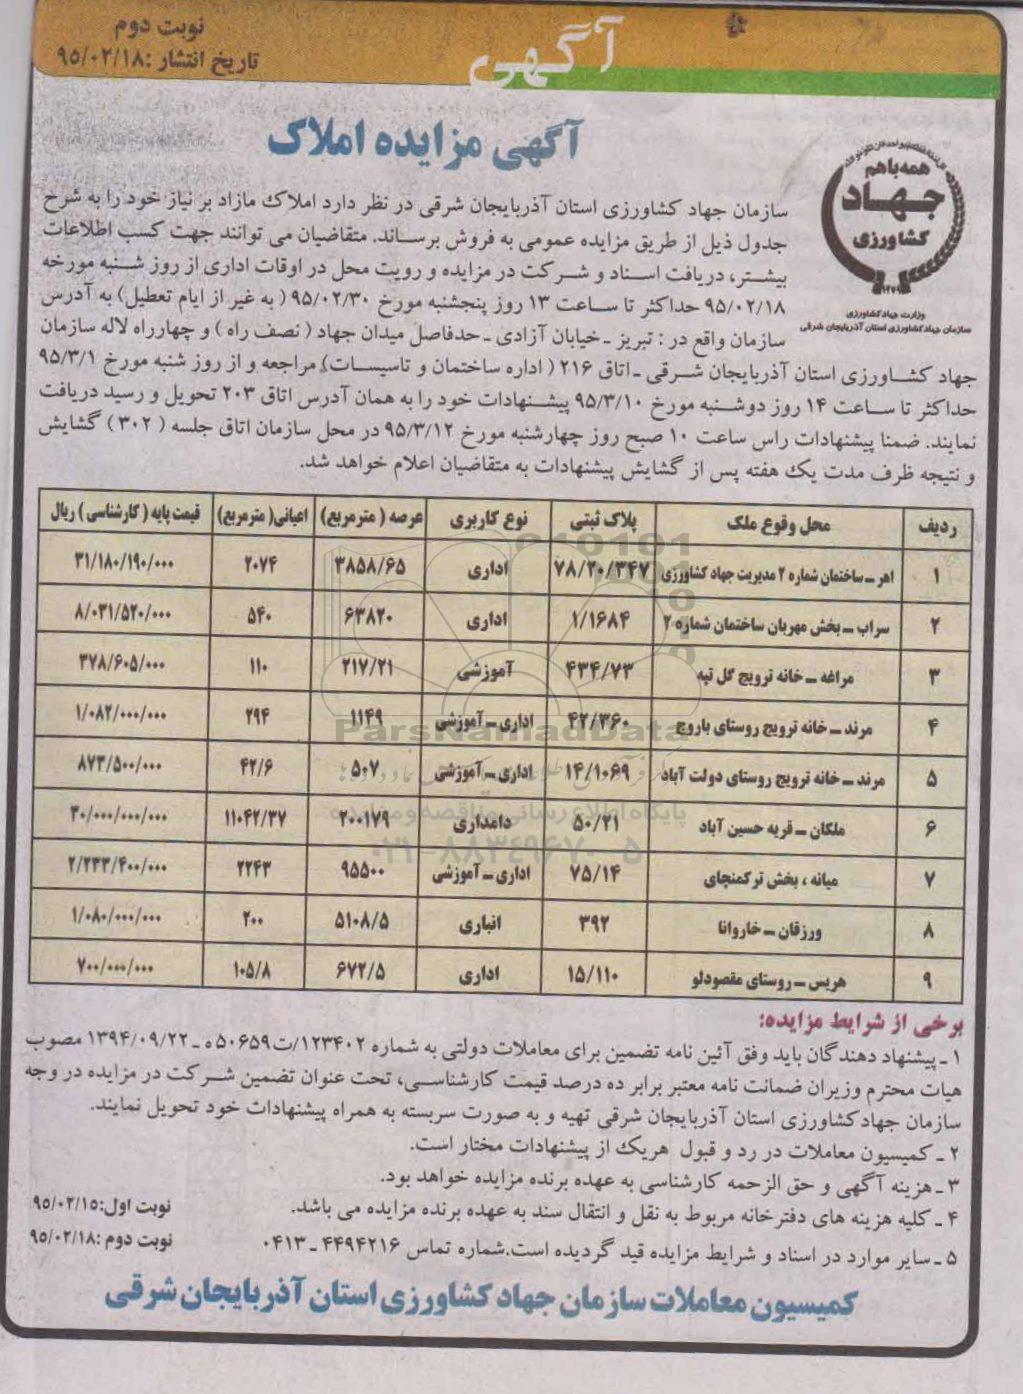 نوبت دوم
تاریخ انتشار :۹۵/۰۲/۱۸
آگهی
آگهی مزایده املاک
همه با هم
جهاد
کشاورزی
وزارت جهاد کشاورزی
سازمان جهاد کشاورزی استان آذربایجان شرقی
سازمان جهاد کشاورزی استان آذربایجان شرقی در نظر دارد املاک مازاد بر نیاز خود را به شرح
جدول ذیل از طریق مزایده عمومی به فروش برساند. متقاضیان می توانند جهت کسب اطلاعات
بیشتر، دریافت اسناد و شرکت در مزایده و رویت محل در اوقات اداری از روز شنبه مورخه
۹۵/۰۲/۱۸ حداکثر تا ساعت ۱۳ روز پنجشنبه مورخ ۹۵/۰۲/۳۰ ( به غیر از ایام تعطیل) به آدرس
سازمان واقع در : تبریز ـ خیابان آزادی ـ حدفاصل میدان جهاد ( نصف راه ) و چهارراه لاله سازمان
جهاد کشاورزی استان آذربایجان شرقی ـ اتاق ۲۱۶ ( اداره ساختمان و تاسیسات) مراجعه و از روز شنبه مورخ ۹۵/۳/۱
حداکثر تا ساعت ۱۴ روز دوشنبه مورخ ۹۵/۳/۱۰ پیشنهادات خود را به همان آدرس اتاق ۲۰۳ تحویل و رسید دریافت
نمایند. ضمنا پیشنهادات راس ساعت ۱۰ صبح روز چهارشنبه مورخ ۹۵/۳/۱۲ در محل سازمان اتاق جلسه ( ۳۰۲ ) گشایش
و نتیجه ظرف مدت یک هفته پس از گشایش پیشنهادات به متقاضیان اعلام خواهد شد.
ردیف محل وقوع ملک پلاک ثبتی نوع کاربری عرصه ( مترمربع) اعیانی( مترمربع) قیمت پایه ( کارشناسی ) ریال
۱ اهر ـ ساختمان شماره ۲ مدیریت جهاد کشاورزی ۷۸/۲۰/۳۴۷ اداری ۳۸۵۸/۶۵ ۲۰۷۴ ۳۱/۱۸۰/۱۹۰/۰۰۰
۲ سراب ـ بخش مهربان ساختمان شماره ۲ ۱/۱۶۸۴ اداری ۶۳۸۲۰ ۵۴۰ ۸/۰۳۱/۵۲۰/۰۰۰
۳ مراغه ـ خانه ترویج گل تپه ۴۳۴/۷۳ آموزشی ۲۱۷/۲۱ ۱۱۰ ۳۷۸/۶۰۵/۰۰۰
۴ مرند ـ خانه ترویج روستای یاروج ۴۲/۳۶۰ اداری ـ آموزشی ۱۱۴۹ ۲۹۴ ۱/۰۸۲/۰۰۰/۰۰۰
۵ مرند ـ خانه ترویج روستای دولت آباد ۱۴/۱۰۶۹ اداری ـ آموزشی ۵۰۷ ۴۲/۶ ۸۷۳/۵۰۰/۰۰۰
۶ ملکان ـ قریه حسین آباد ۵۰/۲۱ دامداری ۲۰۰۱۷۹ ۱۱۰۴۲/۳۷ ۳۰/۰۰۰/۰۰۰/۰۰۰
۷ میانه ، بخش ترکمنچای ۷۵/۱۴ اداری ـ آموزشی ۹۵۵۰۰ ۲۲۴۳ ۲/۲۳۳/۴۰۰/۰۰۰
۸ ورزقان ـ خاروانا ۳۹۲ انباری ۵۱۰۸/۵ ۲۰۰ ۱/۰۸۰/۰۰۰/۰۰۰
۹ هریس ـ روستای مقصودلو ۱۵/۱۱۰ اداری ۶۷۲/۵ ۱۰۵/۸ ۷۰۰/۰۰۰/۰۰۰
ParsNamadData
پایگاه اطلاع رسانی مناقصه و مزایده
۰۲۱-۸۸۳۴۹۶۷۰-۵
برخی از شرایط مزایده:
۱ ـ پیشنهاد دهندگان باید وفق آئین نامه تضمین برای معاملات دولتی به شماره ۱۲۳۴۰۲/ت۵۰۶۵۹ ه ـ ۱۳۹۴/۰۹/۲۲ مصوب
هیات محترم وزیران ضمانت نامه معتبر برابر ده درصد قیمت کارشناسی، تحت عنوان تضمین شرکت در مزایده در وجه
سازمان جهاد کشاورزی استان آذربایجان شرقی تهیه و به صورت سربسته به همراه پیشنهادات خود تحویل نمایند.
۲ ـ کمیسیون معاملات در رد و قبول هریک از پیشنهادات مختار است.
۳ ـ هزینه آگهی و حق الزحمه کارشناسی به عهده برنده مزایده خواهد بود.
۴ ـ کلیه هزینه های دفترخانه مربوط به نقل و انتقال سند به عهده برنده مزایده می باشد.
۵ ـ سایر موارد در اسناد و شرایط مزایده قید گردیده است.شماره تماس ۴۴۹۴۲۱۶ ـ ۰۴۱۳
نوبت اول:۹۵/۰۲/۱۵
نوبت دوم :۹۵/۰۲/۱۸
کمیسیون معاملات سازمان جهاد کشاورزی استان آذربایجان شرقی